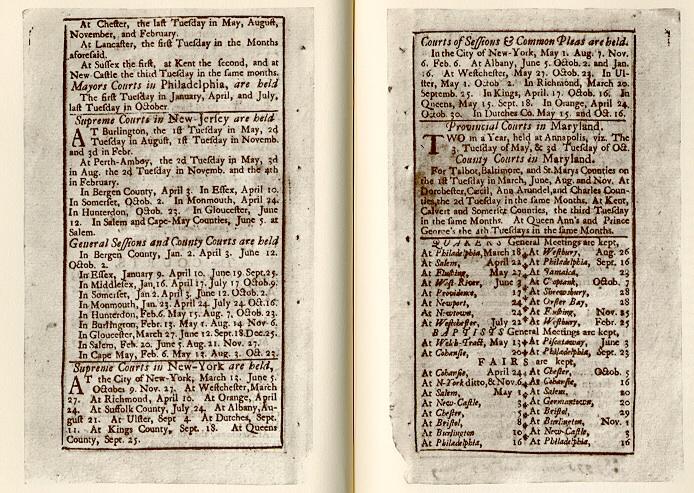 At Chester, the last Tuesday in May, August,
November, and February.
At Lancaster, the first Tuesday in the Months
aforesaid.
At Sussex the first, at Kent the second, and at
New-Castle the third Tuesday in the same months.
Mayors Courts in Philadelphia, are held
The first Tuesday in January, April, and July,
last Tuesday in October.
Supreme Courts in New-Jersey are held
AT Burlington, the 1st Tuesday in May, 2d
Tuesday in August, 1st Tuesday in Novemb.
and 3d in Febr.
At Perth-Amboy, the 2d Tuesday in May, 3d
in Aug. the 2d Tuesday in Novemb. and the 4th
in February.
In Bergen County, April 3. In Essex, April 10.
In Somerset, Octob. 2. In Monmouth, April 24.
In Hunterdon, Octob. 23. In Gloucester, June
12. In Salem and Cape-May Counties, June 5. at
Salem.
General Sessions and County Courts are held
In Bergen County, Jan. 2. April 3. June 12.
Octob. 2.
In Essex, January 9. April 10. June 19. Sept. 25.
In Middlesex, Jan. 16. April 17. July 17 Octob. 9.
In Somerset, Jan 2. April 3. June 12. Octob. 2.
In Monmouth, Jan. 23. April 24. July 24. Oct. 16.
In Hunterdon, Feb. 6. May 15. Aug. 7. Octob. 23.
In Burlington, Febr. 13. May 1. Aug. 14. Nov 6.
In Gloucester, March 27. June 12. Sept. 18. Dec. 25.
In Salem, Feb. 20. June 5. Aug. 21. Nov. 27.
In Cape May, Feb. 6. May 13. Aug. 3. Oct. 23.
Supreme Courts in New-York are held,
AT the City of New-York, March 13. June 5.
October 9. Nov. 27. At Westchester, March
27. At Richmond, April 10. At Orange, April
24. At Suffolk County, July 24. At Albany, Au-
gust 21. At Ulster, Sept 4. At Dutches, Sept.
11. At Kings County, Sept. 18. At Queens
County, Sept. 25.
Courts of Sessions & Common Pleas are held.
In the City of New-York, May 1. Aug. 7. Nov.
6. Feb. 6. At Albany, June 5. Octob. 2. and Jan.
16. At Westchester, May 27. Octob. 23. In Ul-
ster, May 1. Octob 2. In Richmond, March 20.
Septemb. 25. In Kings, April. 17. Octob. 16. In
Queens, May 15. Sept. 18. In Orange, April 24.
Octob. 30. In Dutches Co. May 15. and Oct. 16.
Provincial Courts in Maryland.
TWO in a Year, held at Annapolis, viz. The
3. Tuesday of May, & 3d Tuesday of Oct.
County Courts in Maryland.
For Talbot, Baltimore, and St. Marys Counties on
the 1st Tuesday in March, June, Aug. and Nov. At
Dorchester, Cecil, Ann Arundel, and Charles Coun-
ties, the 2d Tuesday in the same Months. At Kent,
Calvert and Somerset Counties, the third Tuesday
in the same Months. At Queen Ann's and Prince
George's the 4th Tuesdays in the same Months.
QUAKERS General Meetings are kept,
At Philadelphia, March 18 At Westbury, Aug. 26
At Salem, April 22 At Philadelphia, Sept. 16
At Flushing, May 27 At Jamaica, 23
At West River, June 3 At Coptank, Octob. 7
At Providence, 17 At Shrewsbury, 28
At Newport, 24 At Oyster Bay, 28
At Newtown, 24 At Flushing, Nov. 25
At Westchester, July 22 At Westbury, Febr. 25
BAPTISTS General Meetings are kept,
At Welch-Tract, May 13 At Piscataway, June 3
At Cohansie, 20 At Philadelphia, Sept. 23
FAIRS are kept,
At Cohansie, April 24 At Chester, Octob. 5
At N-York ditto, & Nov. 6 At Cohansie, 16
At Salem, May 1 At Salem, 20
At New-Castle, 3 At Germantown, 20
At Chester, 5 At Bristol, 29
At Bristol, 8 At Burlington, Nov. 1
At Burlington 10 At New-Castle, 3
At Philadelphia, 16 At Philadelphia, 16